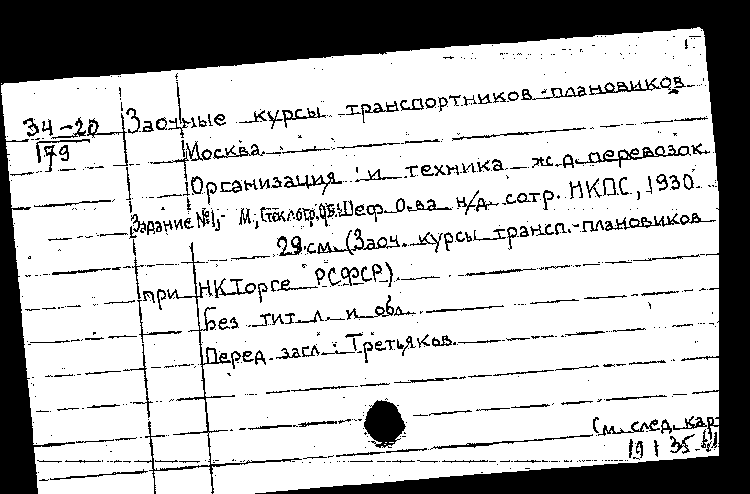 34-20
179
Заочные курсы транспортников-плановиков
Москва.
Организация и техника ж.д. перевозок.
Задание №1,- М, Шеф. О-ва н/д. сотр. НКПС, 1930.
29 см. (Заоч. курсы трансп.-плановиков
при НКТорге РСФСР).
Без тит. л. и обл.
Перед загл.: Третьяков.
См. след. кар
19 I 35